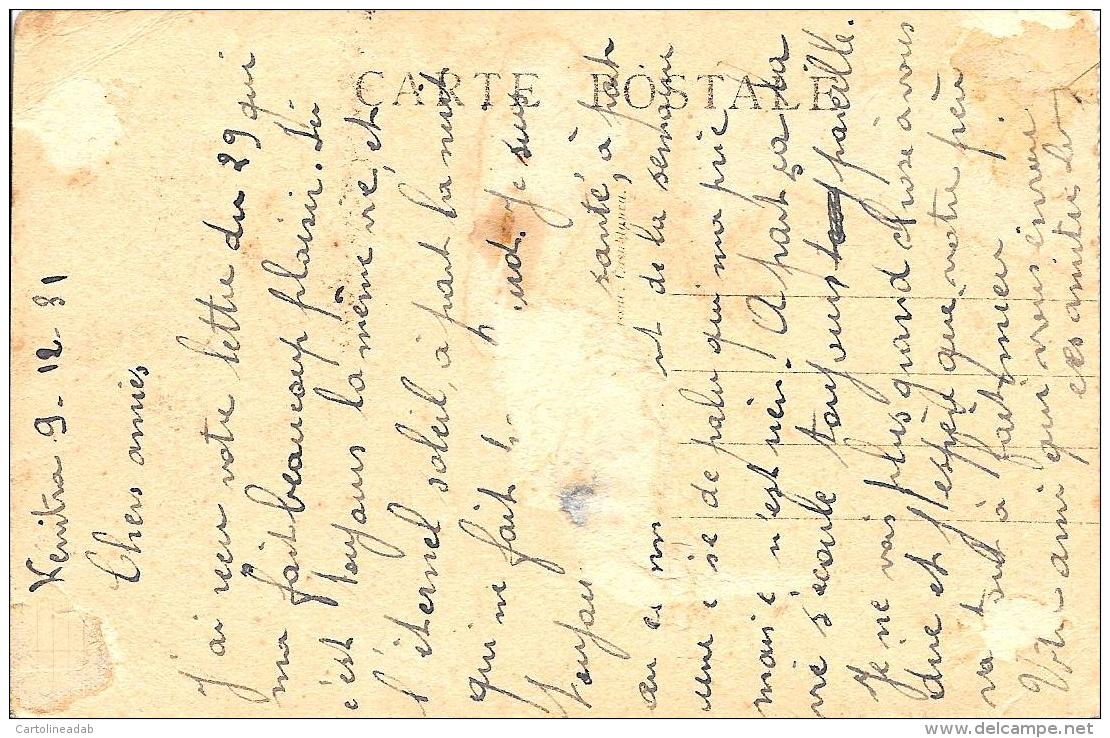 CARTE POSTALE
Kenitra 9-12-31
Chers amies,
J'ai reçu votre lettre du 29 qui
ma fait beaucoup plaisir. Ici
c'est toujours la même vie, et
l'éternel soleil, à part la nuit
qui ne fait Je suis
toujours santé, à part
de la semaine
une crise de palu qui ma pris
mais ce n'est rien. A part ça la
vie s'écoule toujours pareille.
Je ne vais plus grand chose à vous
dire et j'espère que votre père
va tout à fait mieux.
Votre ami qui vous envoie
ses amitiés
Cartolineadab
delcampe.net